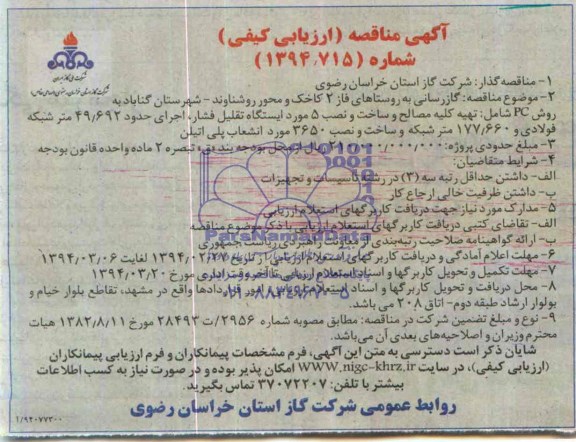 آگهی مناقصه (ارزیابی کیفی)
شماره (۱۳۹۴,۷۱۵)
شرکت ملی گاز ایران
۱- مناقصه‌گذار: شرکت گاز استان خراسان رضوی
۲- موضوع مناقصه: گازرسانی به روستاهای فاز ۲ کاخک و محور روشناوند - شهرستان گناباد به
روش PC شامل: تهیه کلیه مصالح و ساخت و نصب ۵ مورد ایستگاه تقلیل فشار، اجرای حدود ۴۹,۶۹۲ متر شبکه
فولادی و ۱۷۷,۶۶۰ متر شبکه و ساخت و نصب ۳۶۵۰ مورد انشعاب پلی اتیلن
۳- مبلغ حدودی پروژه: ریال از محل بودجه بند بق، تبصره ۲ ماده واحده قانون بودجه
۴- شرایط متقاضیان:
الف- داشتن حداقل رتبه سه (۳) در رشته تأسیسات و تجهیزات
ب- داشتن ظرفیت خالی ارجاع کار
۵- مدارک مورد نیاز جهت دریافت کاربرگهای استعلام ارزیابی
الف- تقاضای کتبی دریافت کاربرگهای استعلام ارزیابی با ذکر موضوع مناقصه
ب- ارائه گواهینامه صلاحیت رتبه‌بندی از معاونت راهبردی ریاست جمهوری
۶- مهلت اعلام آمادگی و دریافت کاربرگهای استعلام ارزیابی: از تاریخ ۱۳۹۴/۰۲/۲۷ لغایت ۱۳۹۴/۰۳/۰۶
۷- مهلت تکمیل و تحویل کاربرگها و اسناد استعلام ارزیابی تا آخر وقت اداری مورخ ۱۳۹۴/۰۳/۲۰
۸- محل دریافت و تحویل کاربرگها و اسناد استعلام ارزیابی: امور قراردادها واقع در مشهد، تقاطع بلوار خیام و
بولوار ارشاد طبقه دوم- اتاق ۲۰۸ می باشد.
۹- نوع و مبلغ تضمین شرکت در مناقصه: مطابق مصوبه شماره ۲۹۵۶/ت ۲۸۴۹۳ مورخ ۱۳۸۲/۸/۱۱ هیات
محترم وزیران و اصلاحیه‌های بعدی آن می‌باشد.
شایان ذکر است دسترسی به متن این آگهی، فرم مشخصات پیمانکاران و فرم ارزیابی پیمانکاران
(ارزیابی کیفی)، در سایت WWW.nigc-khrz.ir امکان پذیر بوده و در صورت نیاز به کسب اطلاعات
بیشتر با تلفن: ۳۷۰۷۲۲۰۷ تماس بگیرید.
روابط عمومی شرکت گاز استان خراسان رضوی
ParsNamadData